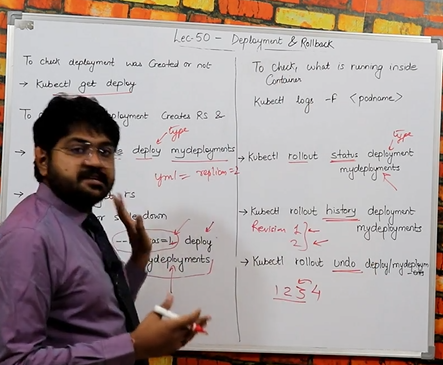 Lec-50 - Deployment & Rollback
To check deployment was Created or not
→ Kubectl get deploy
ployment Creates RS &
type
deploy mydeployments
yml = replica=2
rs
down
=1 deploy
mydeployments
To check, what is running inside
Container
Kubectl logs -f <podname>
type
→ Kubectl rollout status deployment
mydeployments
→ Kubectl rollout history deployment
mydeployments
Revision 1
2
→ Kubectl rollout undo deploy/mydeploym
ents
1 2 3 4